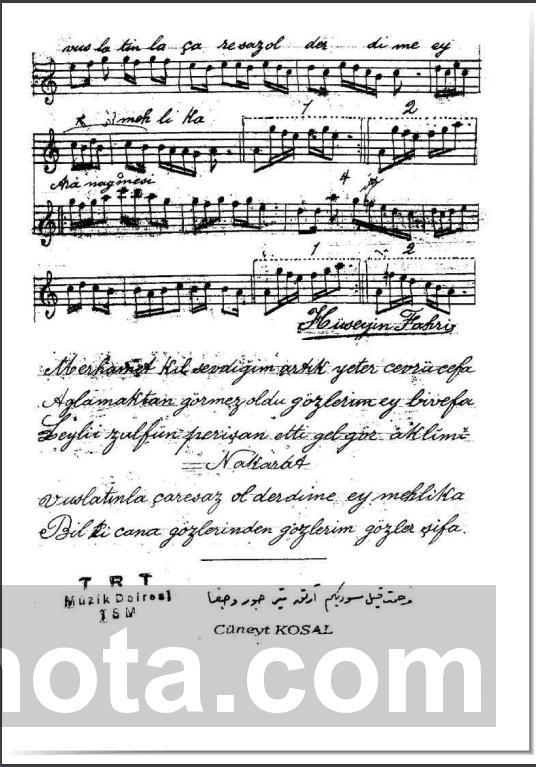 vus la tin la ça re sazol der di me ey
meh li ka
1 2
Ara nağmesi
4
1 2
Hüseyin Fahri
Merhamet kıl sevdiğim artık yeter cevrü cefa
Ağlamaktan görmez oldu gözlerim ey bivefa
Leyli zulfün perişan etti gel gör aklimi
Nakarat
Vuslatınla çaresaz ol derdime ey mehlika
Bil ki cana gözlerinden gözlerim gözler şifa.
TRT
Müzik Dairesi
TSM
جور و جفا
Cüneyt KOSAL
nota.com